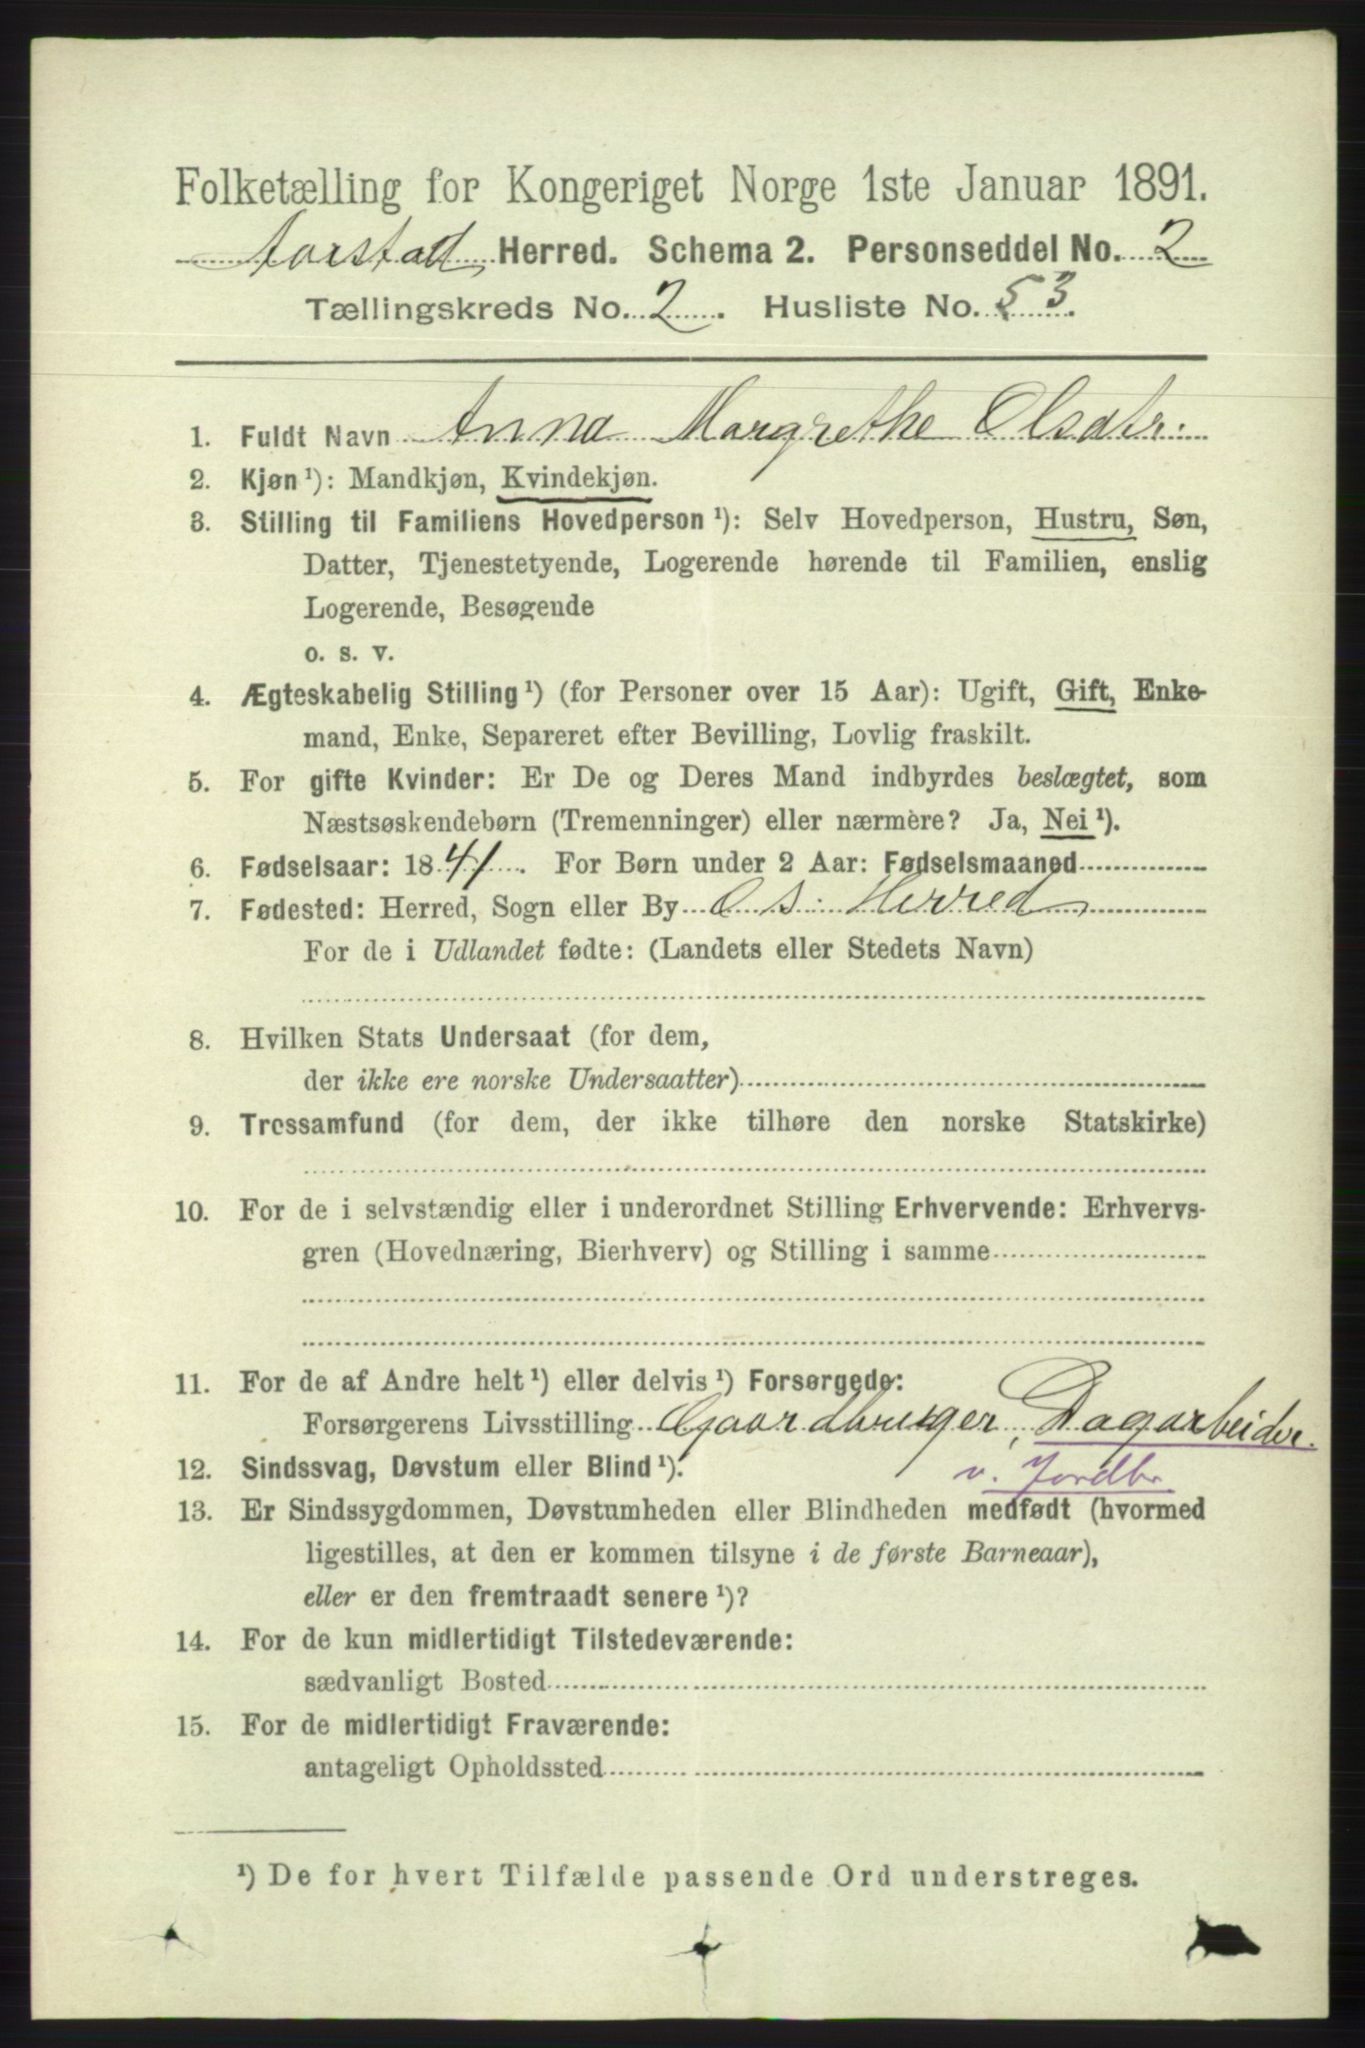 Folketælling for Kongeriget Norge 1ste Januar 1891.
Aarstad Herred. Schema 2. Personseddel No. 2
Tællingskreds No. 2. Husliste No. 53.
1. Fuldt Navn Anna Margrethe Olsdtr.
2. Kjøn ¹): Mandkjøn, Kvindekjøn.
3. Stilling til Familiens Hovedperson ¹): Selv Hovedperson, Hustru, Søn,
Datter, Tjenestetyende, Logerende hørende til Familien, enslig
Logerende, Besøgende
o. s. v.
4. Ægteskabelig Stilling ¹) (for Personer over 15 Aar): Ugift, Gift, Enke-
mand, Enke, Separeret efter Bevilling, Lovlig fraskilt.
5. For gifte Kvinder: Er De og Deres Mand indbyrdes beslægtet, som
Næstsøskendebørn (Tremenninger) eller nærmere? Ja, Nei ¹).
6. Fødselsaar: 1841. For Børn under 2 Aar: Fødselsmaaned
7. Fødested: Herred, Sogn eller By Os. Herred
For de i Udlandet fødte: (Landets eller Stedets Navn)
8. Hvilken Stats Undersaat (for dem,
der ikke ere norske Undersaatter)
9. Trossamfund (for dem, der ikke tilhøre den norske Statskirke)
10. For de i selvstændig eller i underordnet Stilling Erhvervende: Erhvervs-
gren (Hovednæring, Bierhverv) og Stilling i samme
11. For de af Andre helt ¹) eller delvis ¹) Forsørgede:
Forsørgerens Livsstilling Gaardbruger, Dagarbeider.
12. Sindssvag, Døvstum eller Blind ¹). v. Jordbr
13. Er Sindssygdommen, Døvstumheden eller Blindheden medfødt (hvormed
ligestilles, at den er kommen tilsyne i de første Barneaar),
eller er den fremtraadt senere ¹)?
14. For de kun midlertidigt Tilstedeværende:
sædvanligt Bosted
15. For de midlertidigt Fraværende:
antageligt Opholdssted
¹) De for hvert Tilfælde passende Ord understreges.